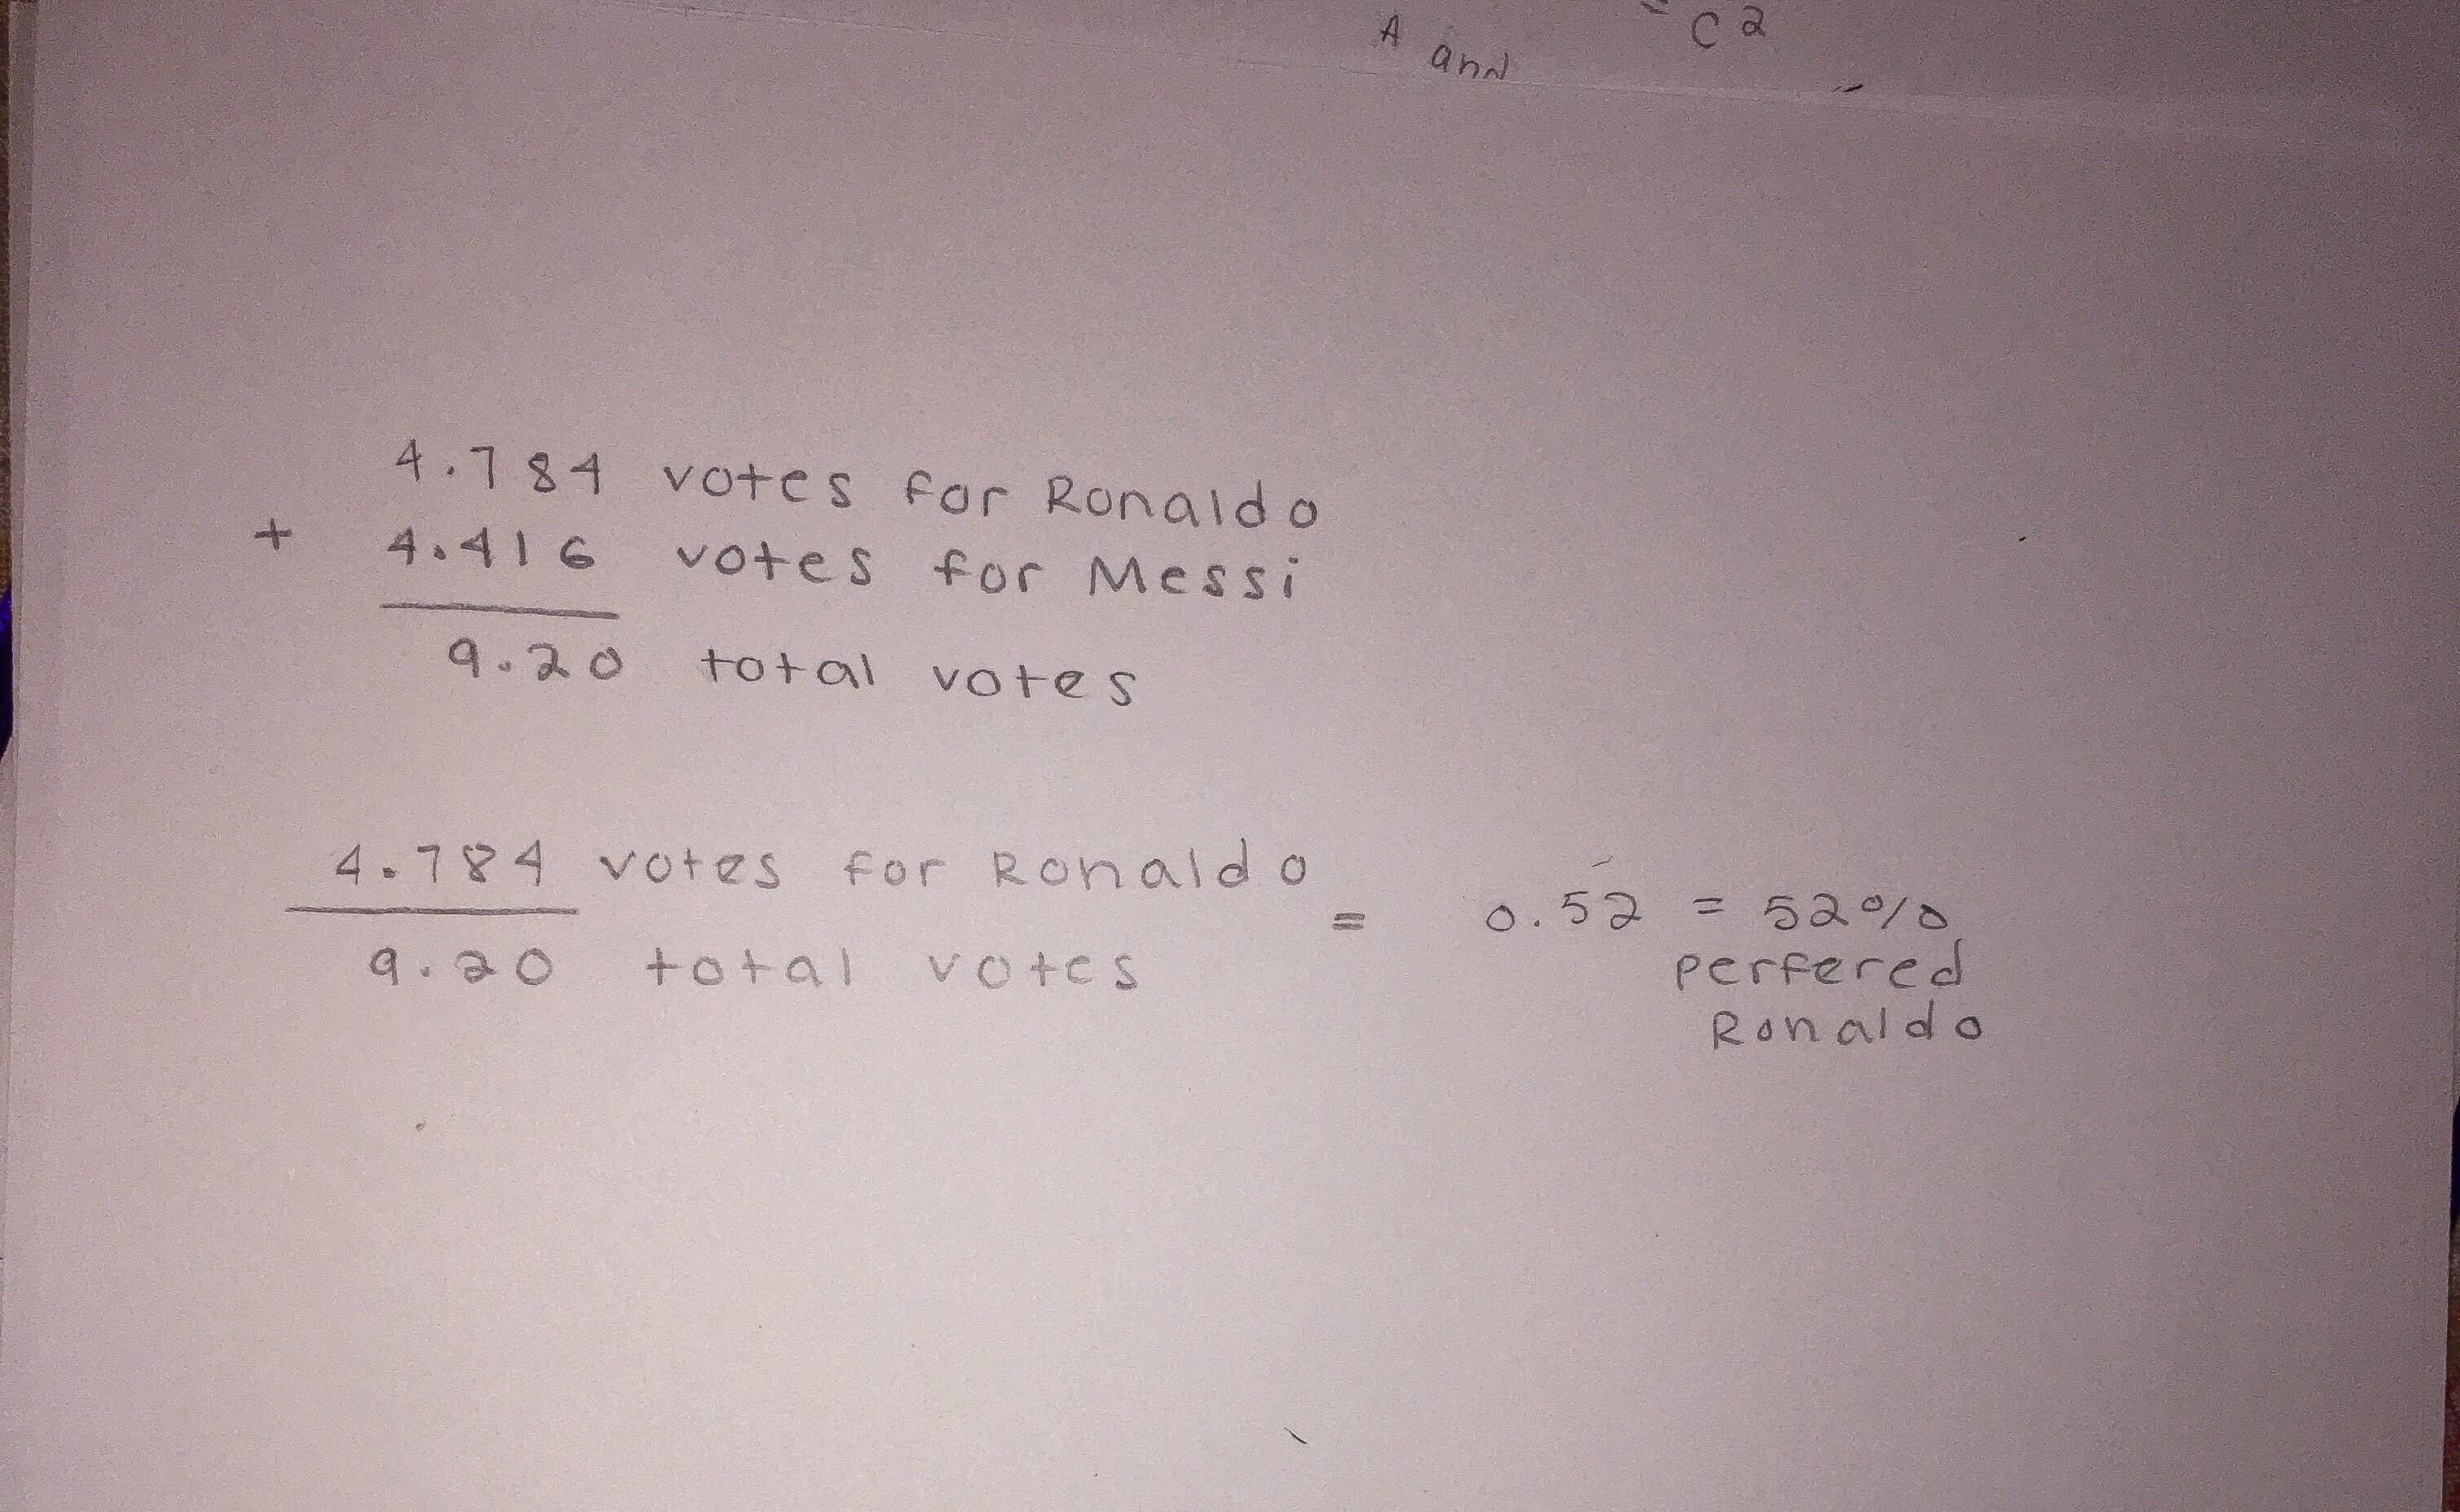 A and = C2
4.784 votes for Ronaldo
+ 4.416 votes for Messi
9.20 total votes
4.784 votes for Ronaldo
9.20 total votes
= 0.52 = 52%
perfered
Ronaldo